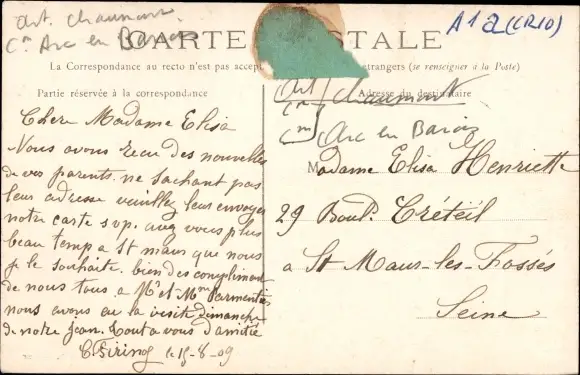 Art. Chaumont
Cⁿ Arc en Barrois
A1a (CR10)
CARTE POSTALE
La Correspondance au recto n'est pas accep
étrangers (se renseigner à la Poste)
Partie réservée à la correspondance
Adresse du destinataire
Art Chaumont
Cⁿ
Cⁿᵉ Arc en Barois
Chère Madame Elisa
Nous avons recu des nouvelles
de vos parents. ne sachant pas
leur adresse veuillez leur envoyer
notre carte svp. avez vous plus
beau temp a St maur que nous
je le souhaite. bien des compliments
de nous tous a Mr et Mme Parmentier
nous avons eu la visite dimanche
de notre Jean. tout a vous d'amitié
le 15-8-09
Madame Elisa Henriette
29 Boul. Créteil
a St Maur-les-Fossés
Seine